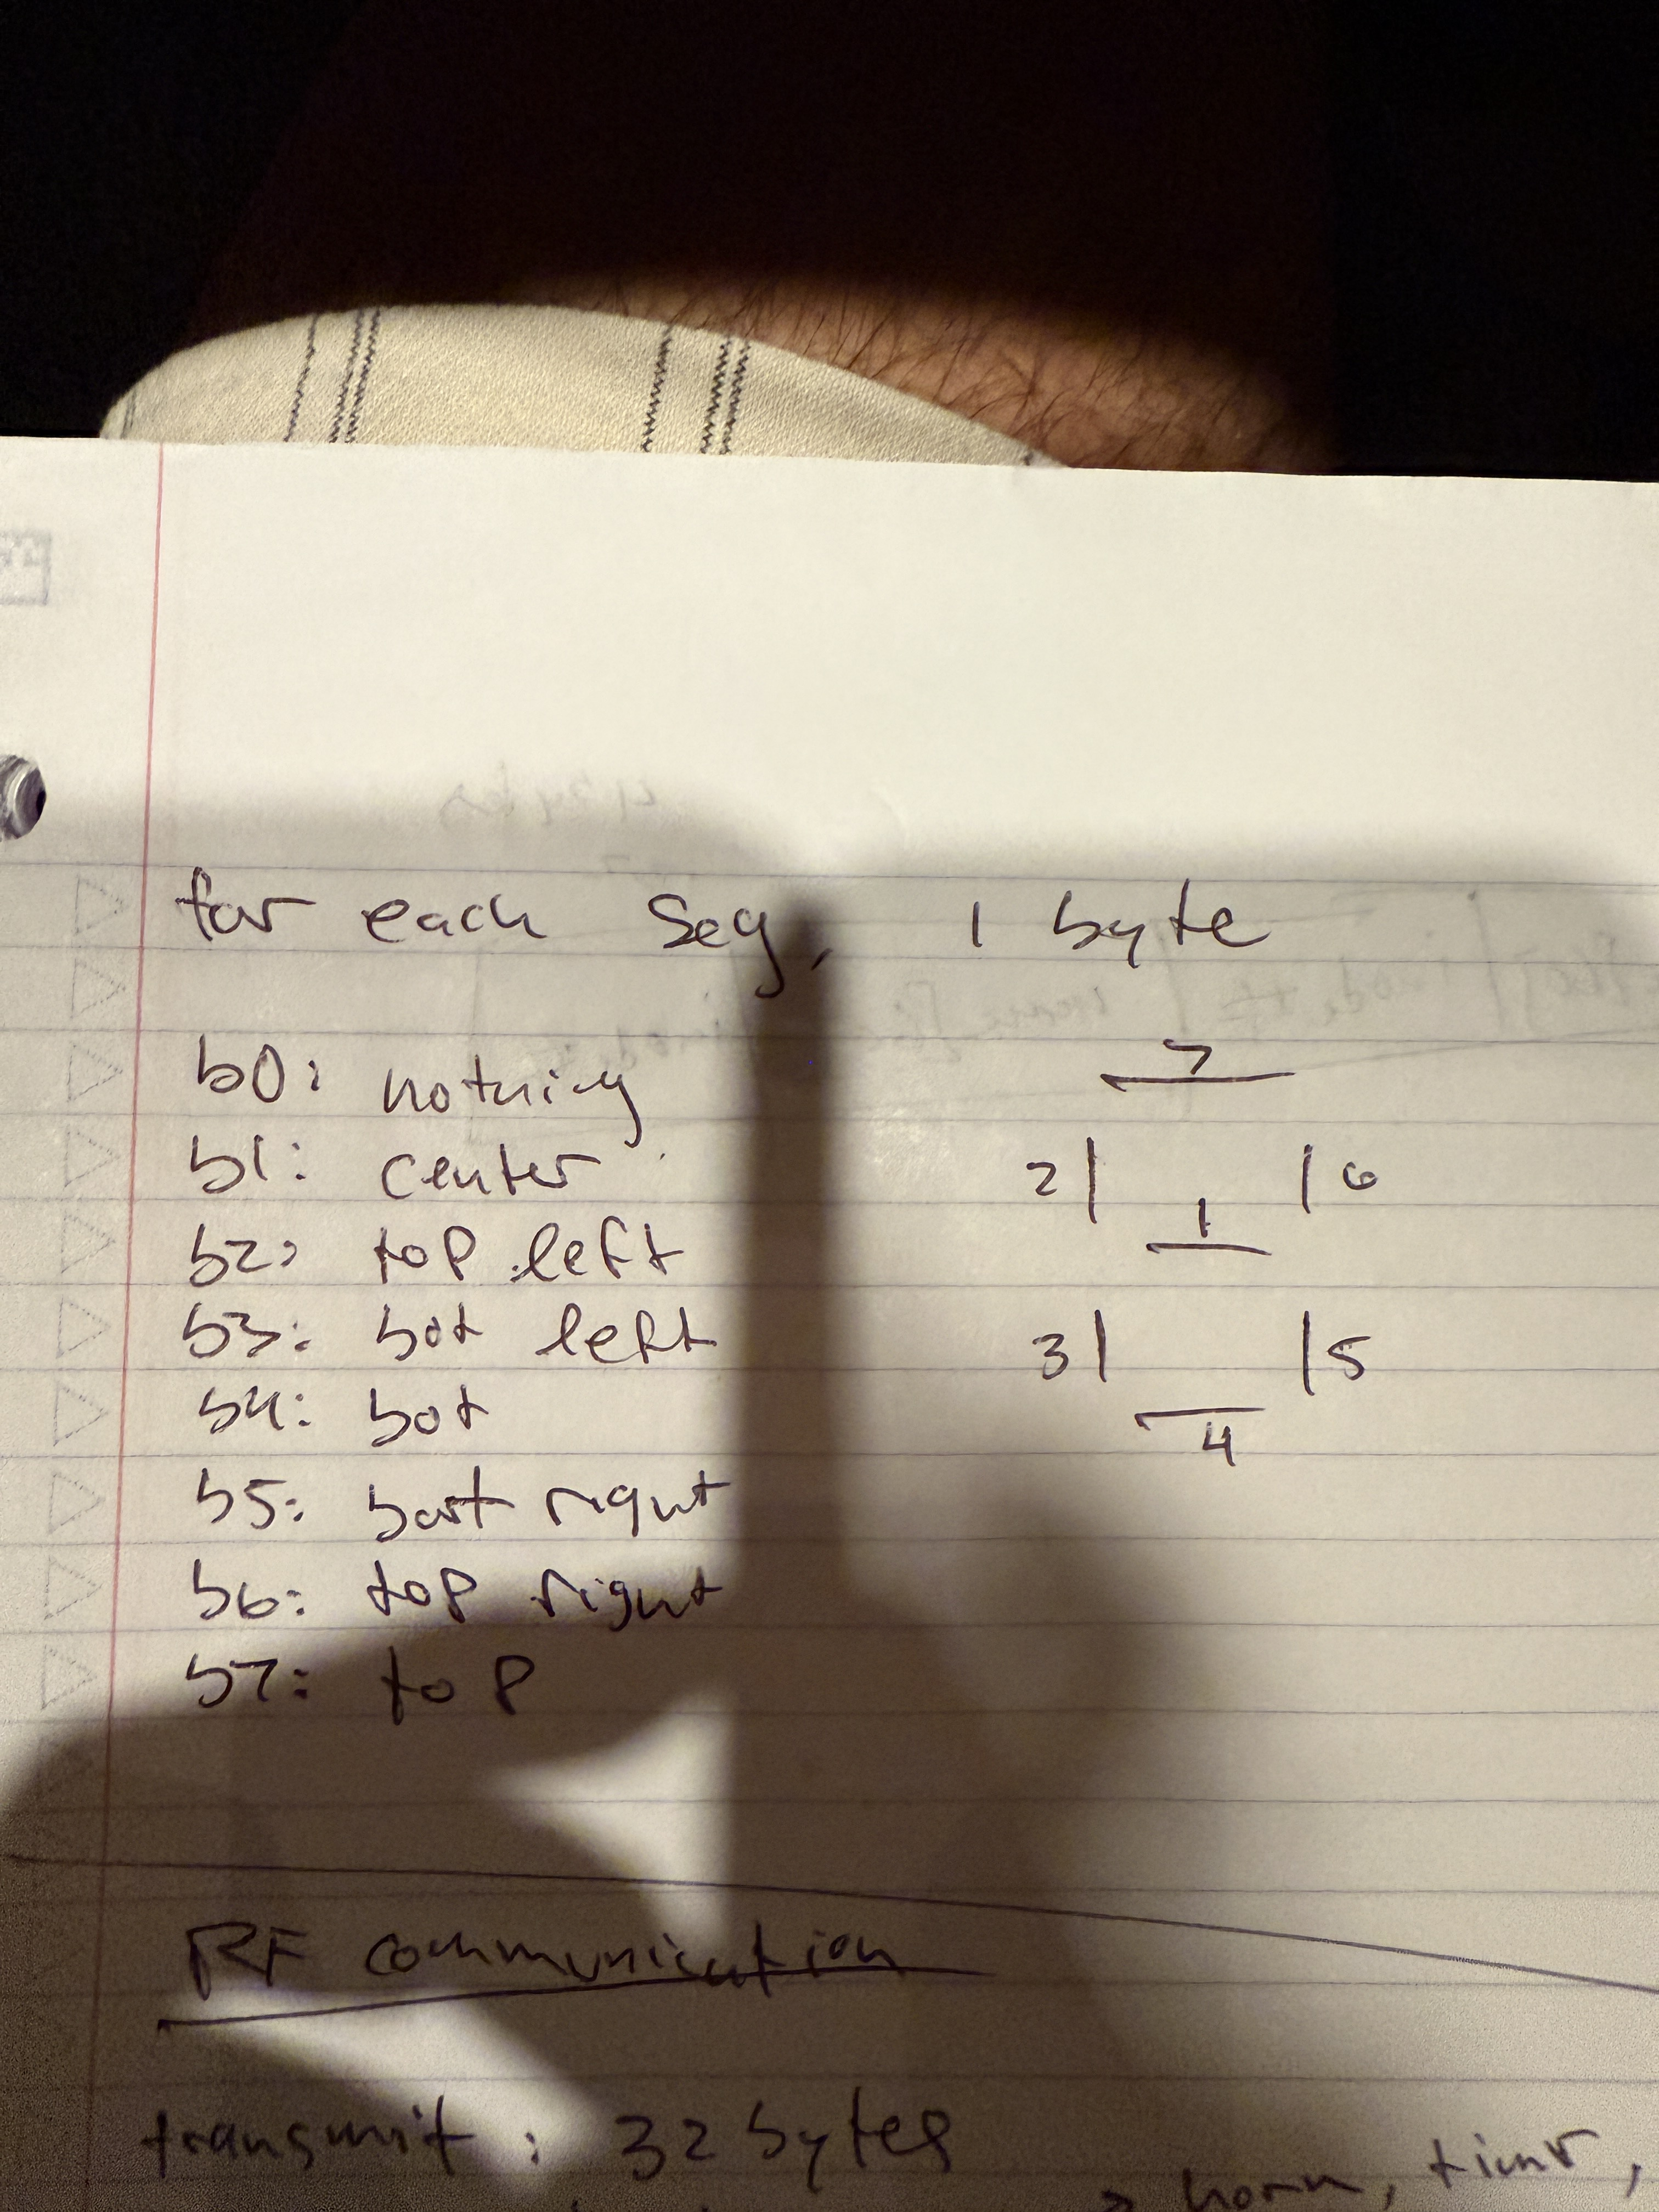 for each seg, 1 byte
b0: nothing
b1: center
b2: top left
b3: bot left
b4: bot
b5: bort right
b6: top right
b7: top
7
2 6
1
3 5
4
RF communication
transmit: 32 bytes
> horn, timr,